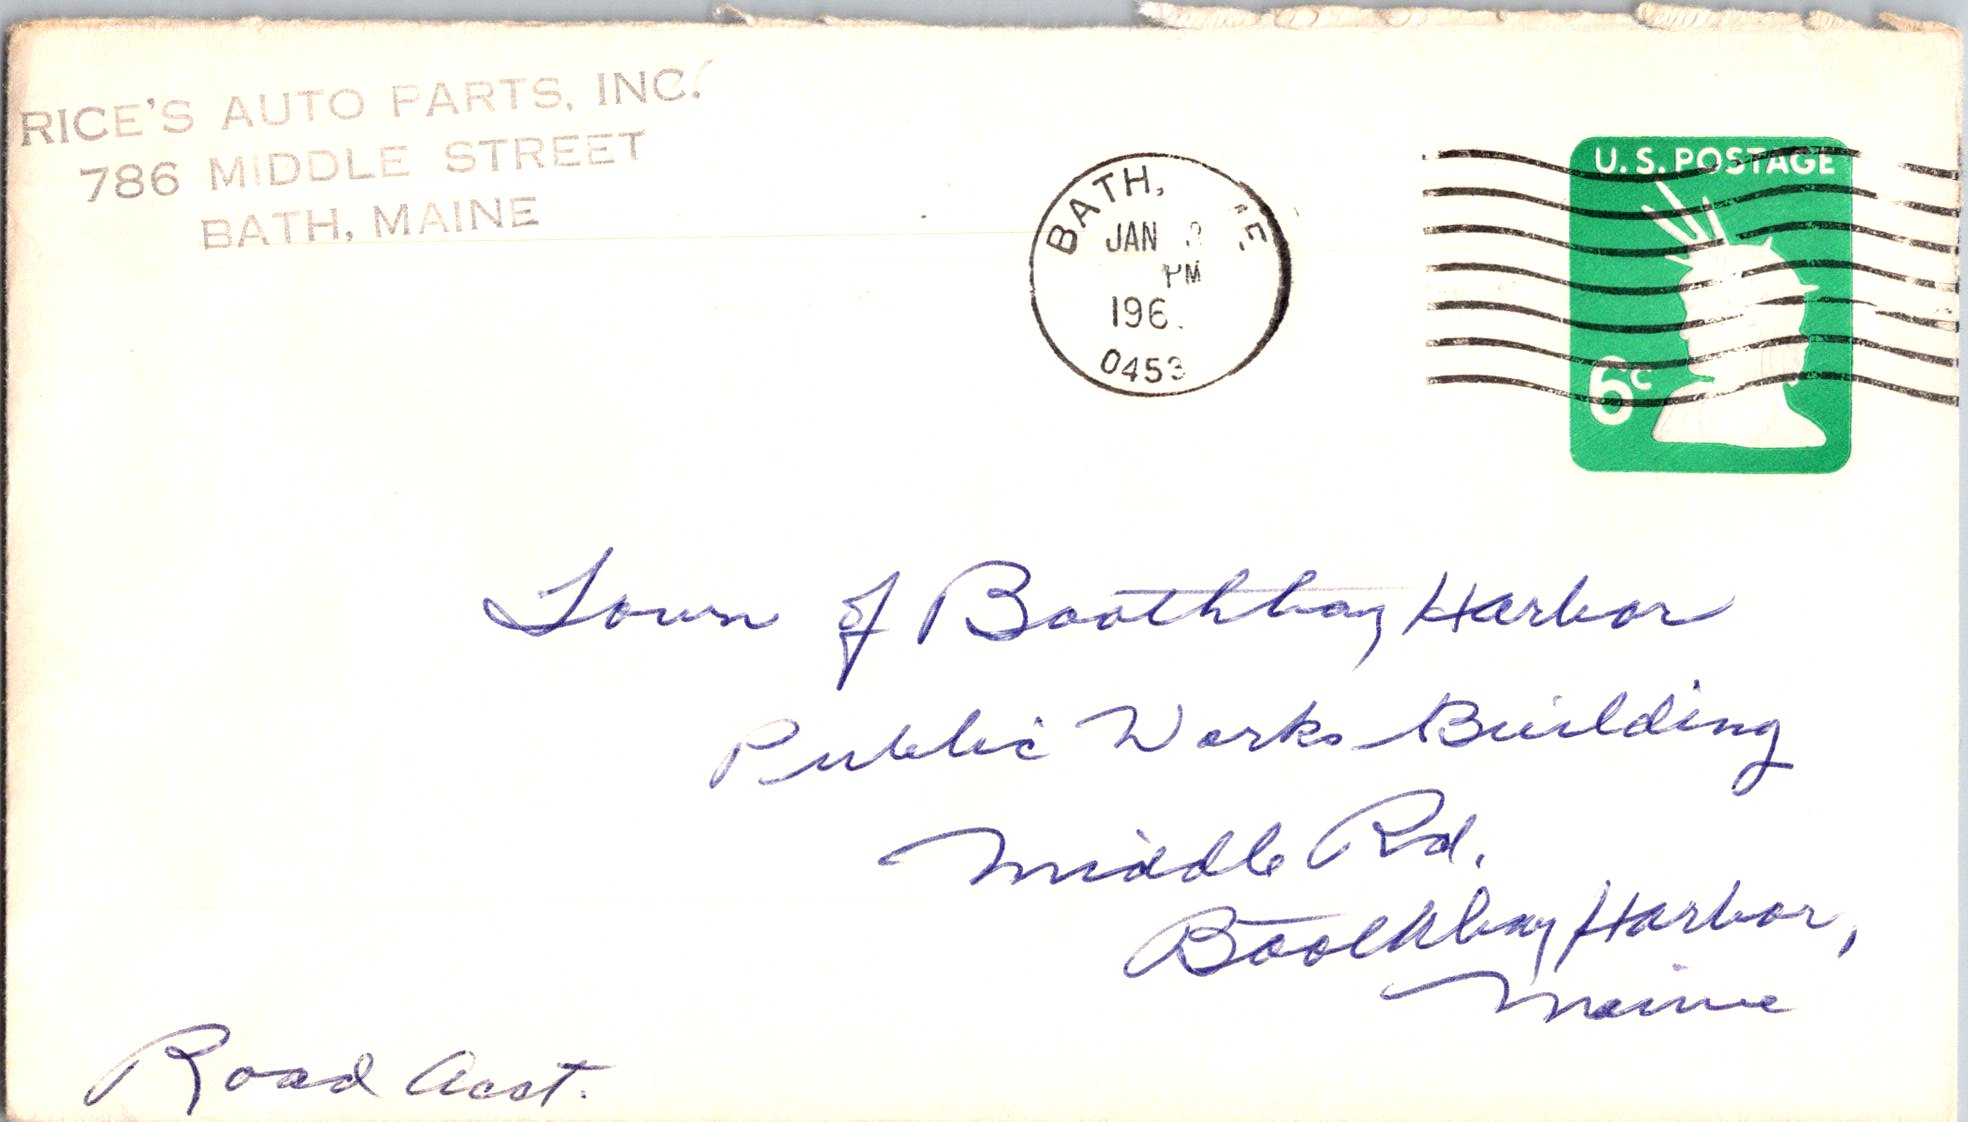 RICE'S AUTO PARTS, INC.
786 MIDDLE STREET
BATH, MAINE
BATH, ME
JAN
PM
196
0453
U.S. POSTAGE
6c
Town of Boothbay Harbor
Public Works Building
Middle Rd.
Boothbay Harbor,
Maine
Road Acct.